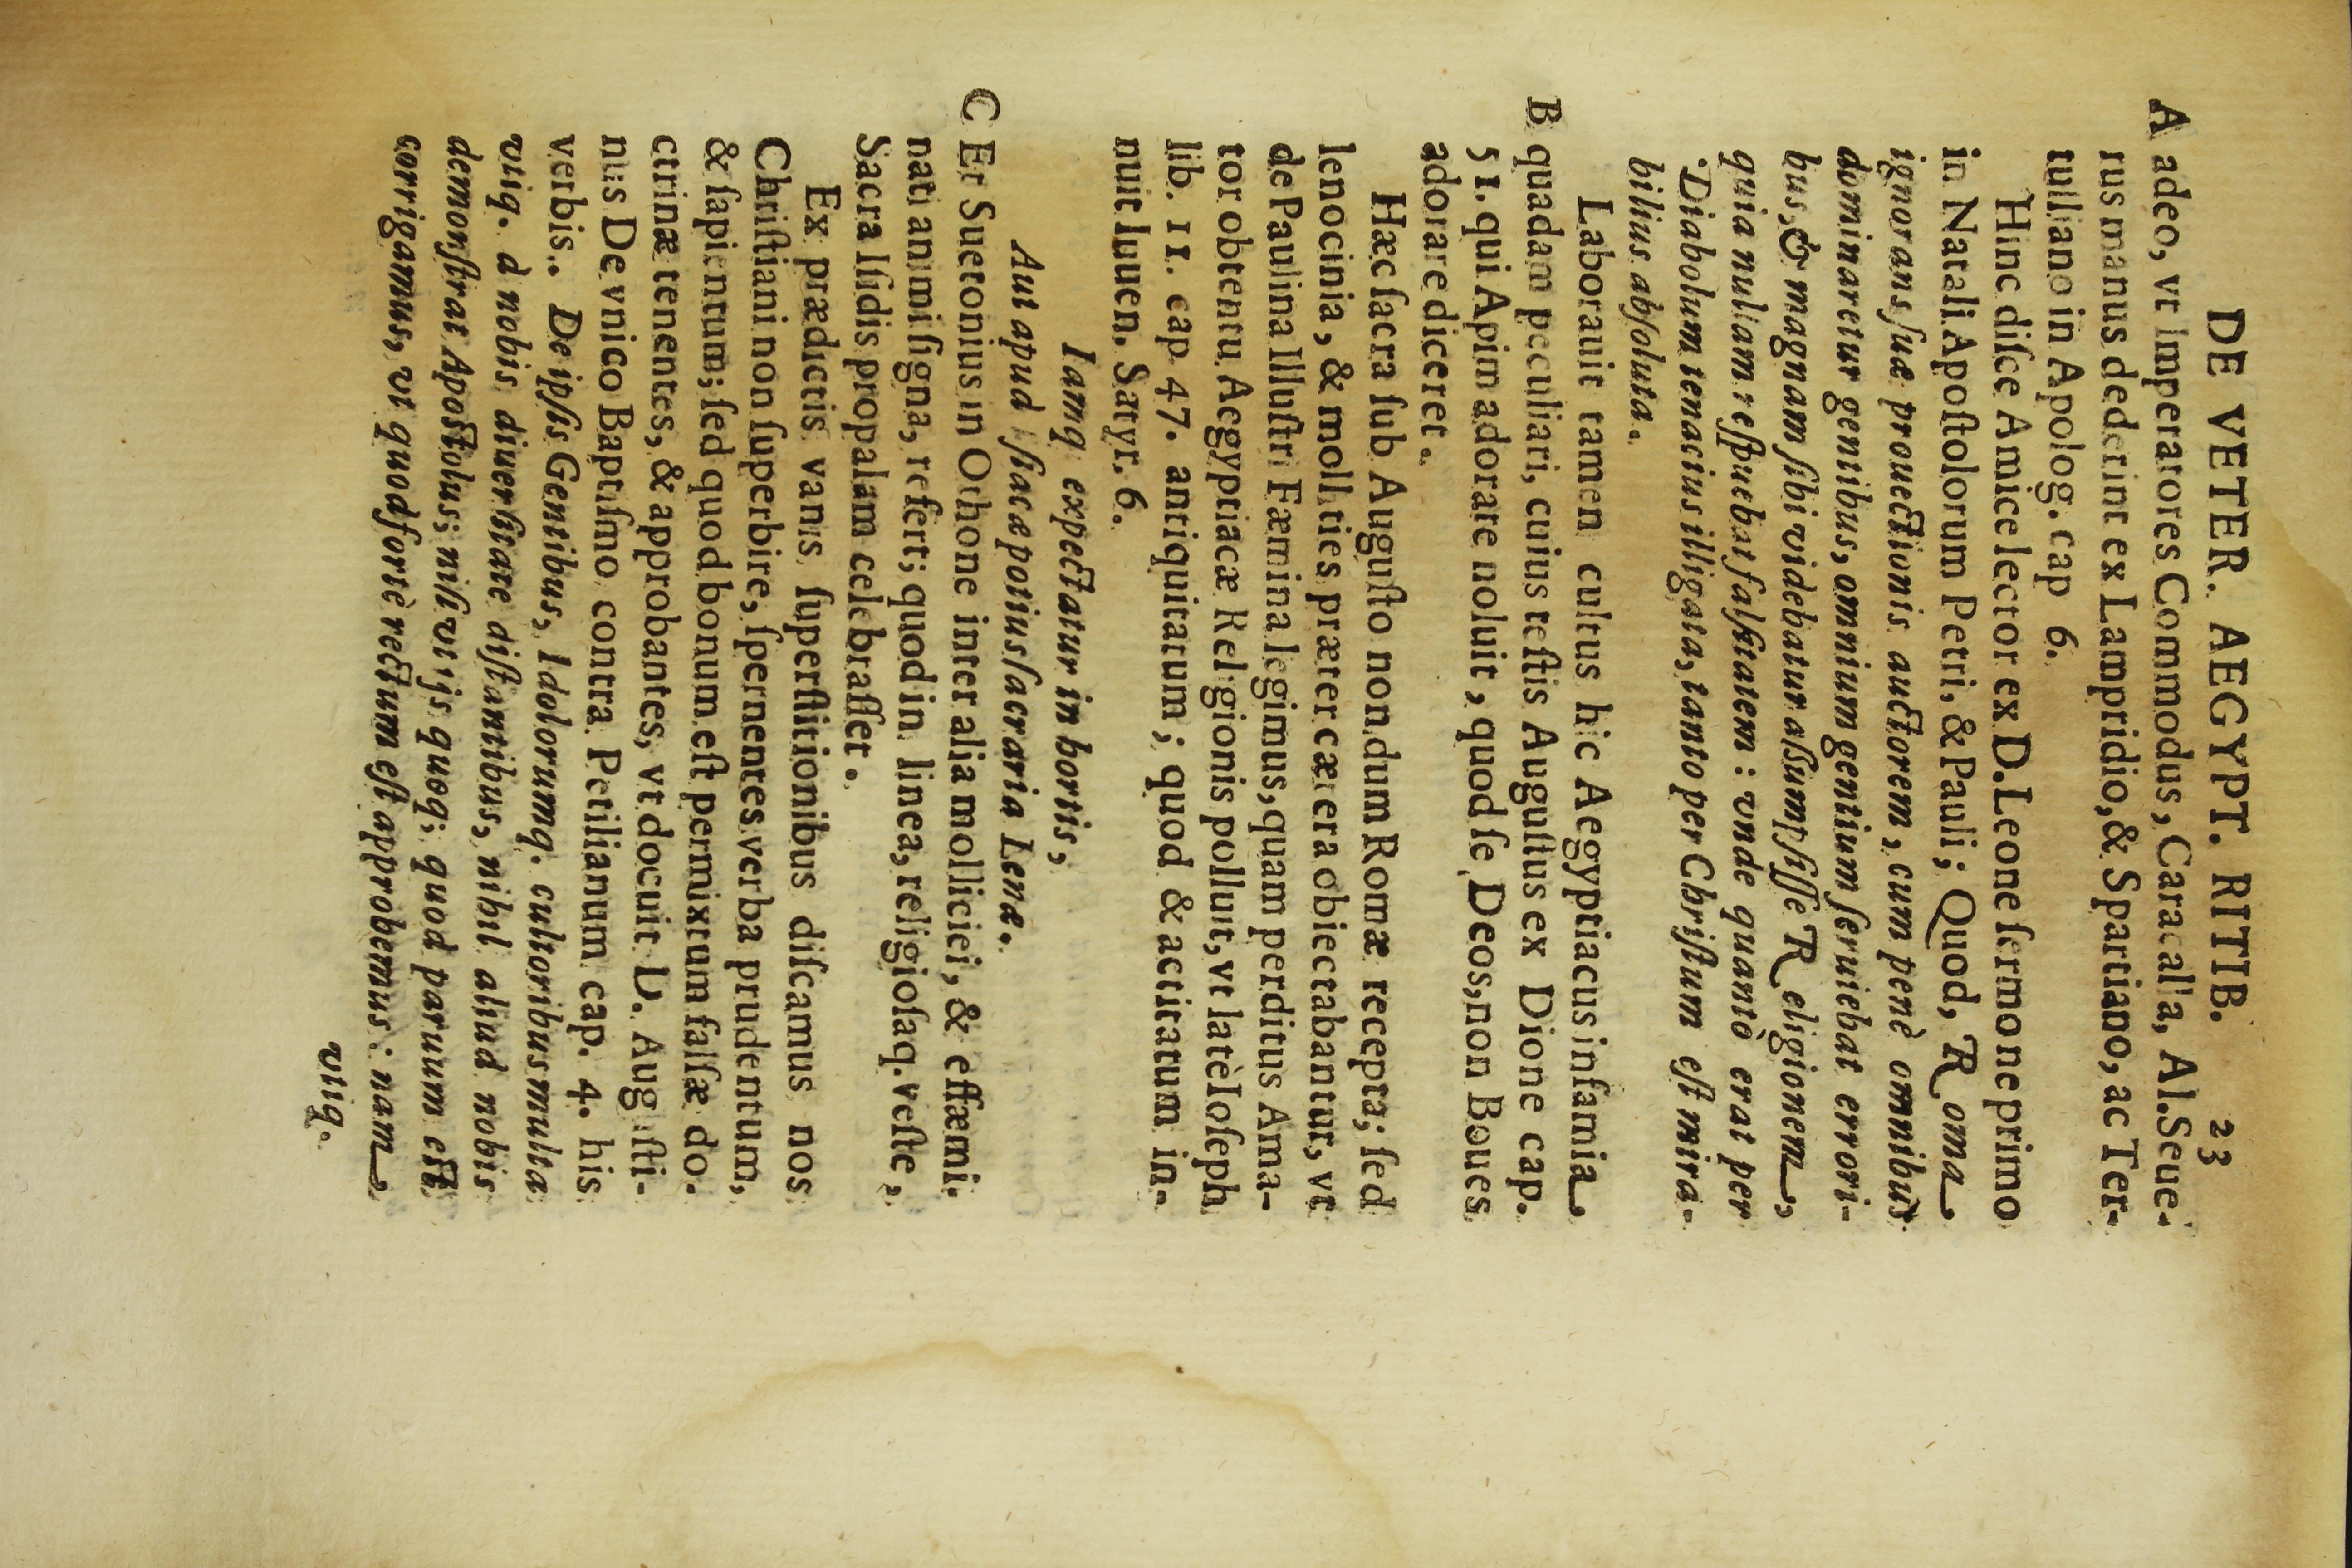 DE VETER. AEGYPT. RITIB. 23
A adeo, vt Imperatores Commodus, Caracalla, Al.Seue-
rus manus dederint ex Lampridio, & Spartiano, ac Ter-
tulliano in Apolog. cap 6.
Hinc diſce Amice lector ex D. Leone ſermone primo
in Natali Apoſtolorum Petri, & Pauli; Quod, Roma
ignorans ſuæ prouectionis auctorem, cum penè omnibus
dominaretur gentibus, omnium gentium ſeruiebat errori-
bus, & magnam ſibi videbatur aßumpſiſſe Religionem,
quia nullam reſpuebat falſitatem: vnde quantò erat per
Diabolum tenacius illigata, tanto per Chriſtum eſt mira-
bilius abſoluta.
Laborauit tamen cultus hic Aegyptiacus infamia
B quadam peculiari, cuius teſtis Auguſtus ex Dione cap.
51. qui Apim adorare noluit, quod ſe Deos, non Boues
adorare diceret.
Hæc ſacra ſub Auguſto nondum Romæ recepta; ſed
lenocinia, & mollities præter cætera obiectabantur, vt
de Paulina Illuſtri Fæmina legimus, quam perditus Ama-
tor obtentu Aegyptiacæ Religionis polluit, vt latè Ioſeph
lib. 11. cap 47. antiquitatum; quod & actitatum in-
nuit Iuuen. Satyr. 6.
Iamq expectatur in hortis,
Aut apud Iſiacæ potius ſacraria Lenæ.
C Et Suetonius in Othone inter alia molliciei, & effæmi-
nati animi ſigna, refert; quod in linea, religioſaq. veſte,
Sacra Iſidis propalam celebraſſet.
Ex prædictis vanis ſuperſtitionibus diſcamus nos
Chriſtiani non ſuperbire, ſpernentes verba prudentum,
& ſapientum; ſed quod bonum eſt permixtum falſæ do-
ctrinæ tenentes, & approbantes, vt docuit D. Auguſti-
nus De vnico Baptiſmo contra Petilianum cap. 4. his
verbis.. De ipſis Gentibus, Idolorumq. cultoribus multa
vtiq. à nobis diuerſitate diſtantibus, nihil aliud nobis
demonſtrat Apoſtolus; niſi vt ijs quoq; quod parum eſt
corrigamus, vt quod fortè rectum eſt approbemus: nam
vtiq.